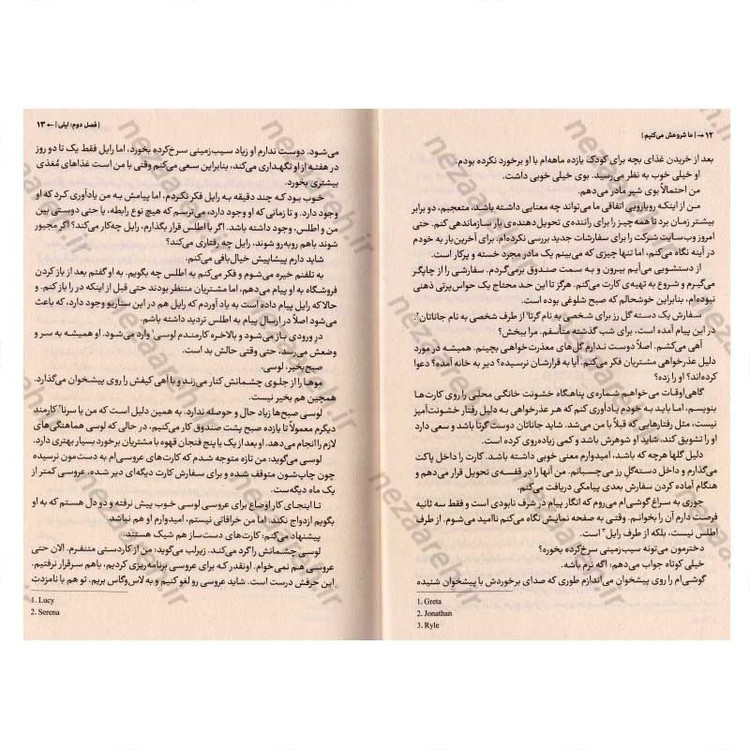 ۱۲ → | ما شروعش می‌کنیم |
بعد از خریدن غذای بچه برای کودک یازده ماهه‌ام با او برخورد نکرده بودم.
او خیلی خوب به نظر می‌رسید. بوی خیلی خوبی داشت.
من احتمالاً بوی شیر مادر می‌دهم.
من از اینکه رویارویی اتفاقی ما می‌تواند چه معنایی داشته باشد، متعجبم، دو برابر
بیشتر زمان برد تا همه چیز را برای راننده‌ی تحویل‌دهنده‌ی بار سازماندهی کنم.
امروز وب‌سایت شرکت را برای سفارشات جدید بررسی نکرده‌ام. برای آخرین‌بار به خودم
در آینه نگاه می‌کنم، اما تنها چیزی که می‌بینم یک مادر مجرد خسته و پرکار است.
از دستشویی می‌آیم بیرون و به سمت صندوق برمی‌گردم. سفارشی را از چاپگر
می‌گیرم و شروع به تهیه‌ی کارت می‌کنم. هرگز تا این حد محتاج یک حواس‌پرتی ذهنی
نبوده‌ام، بنابراین خوشحالم که صبح شلوغی بوده است.
سفارش یک دسته گل رز برای شخصی به نام گرتا¹ از طرف شخصی به نام جاناتان².
در این پیام آمده است، برای شب گذشته متأسفم. مرا ببخش؟
آهی می‌کشم. اصلاً دوست ندارم گل‌های معذرت‌خواهی بچینم. همیشه در مورد
دلیل عذرخواهی مشتریان فکر می‌کنم. آیا به قرارشان نرسیده؟ دیر به خانه آمده؟ دعوا
کرده‌اند؟ او را زده؟
گاهی‌اوقات می‌خواهم شماره‌ی پناهگاه خشونت خانگی محلی را روی کارت‌ها
بنویسم، اما باید به خودم یادآوری کنم که هر عذرخواهی به دلیل رفتار خشونت‌آمیز
نیست، مثل رفتارهایی که قبلاً با من می‌شد. شاید جاناتان دوست گرتا باشد و سعی دارد
او را تشویق کند، شاید او شوهرش باشد و کمی زیاده‌روی کرده است.
دلیل گلها هرچه که باشد، امیدوارم معنی خوبی داشته باشد. کارت را داخل پاکت
می‌گذارم و داخل دسته‌گل رز می‌چسبانم. من آنها را در قفسه‌ی تحویل قرار می‌دهم و
هنگام آماده کردن سفارش بعدی پیامکی دریافت می‌کنم.
جوری به سراغ گوشی‌ام می‌روم که انگار پیام در شرف نابودی است و فقط سه ثانیه
فرصت دارم آن را بخوانم. وقتی به صفحه نمایش نگاه می‌کنم ناامید می‌شوم. از طرف
اطلس نیست، بلکه از طرف رایل³ است.
دخترمون می‌تونه سیب‌زمینی سرخ‌کرده بخوره؟
خیلی کوتاه جواب می‌دهم: اگه نرم باشه.
گوشی‌ام را روی پیشخوان می‌اندازم طوری که صدای برخوردش با پیشخوان شنیده
1. Greta
2. Jonathan
3. Ryle
| فصل دوم: لیلی | ← ۱۳
می‌شود. دوست ندارم او زیاد سیب‌زمینی سرخ‌کرده بخورد، اما رایل فقط یک تا دو روز
در هفته از او نگهداری می‌کند، بنابراین سعی می‌کنم وقتی با من است غذاهای مُغذی
بیشتری بخورد.
خوب بود که چند دقیقه به رایل فکر نکردم، اما پیامش به من یادآوری کرد که او
وجود دارد. و تا زمانی که او وجود دارد، می‌ترسم که هیچ نوع رابطه، یا حتی دوستی بین
من و اطلس، وجود داشته باشد. اگر با اطلس قرار بگذارم، رایل چه‌کار می‌کند؟ اگر مجبور
شوند باهم روبه‌رو شوند، رایل چه رفتاری می‌کند؟
شاید دارم پیشاپیش خیال‌بافی می‌کنم.
به تلفنم خیره می‌شوم و فکر می‌کنم به اطلس چه بگویم. به او گفتم بعد از باز کردن
فروشگاه به او پیام می‌دهم، اما مشتریان منتظر بودند حتی قبل از اینکه در را باز کنم. و
حالا که رایل پیام داده است به یاد آوردم که رایل هم در این سناریو وجود دارد، که باعث
می‌شود اصلاً در ارسال پیام به اطلس تردید داشته باشم.
درِ ورودی باز می‌شود و بالاخره کارمندم لوسی¹ وارد می‌شود. او همیشه به سر و
وضعش می‌رسد، حتی وقتی حالش بد است.
صبح‌بخیر، لوسی.
موها را از جلوی چشمانش کنار می‌زند و با آهی کیفش را روی پیشخوان می‌گذارد.
همچین هم بخیر نیست.
لوسی صبح‌ها زیاد حال و حوصله ندارد. به همین دلیل است که من یا سرنا² کارمند
دیگرم معمولاً تا یازده صبح پشت صندوق کار می‌کنیم، در حالی که لوسی هماهنگی‌های
لازم را انجام می‌دهد. او بعد از یک یا پنج فنجان قهوه با مشتریان برخورد بسیار بهتری دارد.
لوسی می‌گوید: من تازه متوجه شدم که کارت‌های عروسی‌ام به دست‌مون نرسیده
چون چاپ‌شون متوقف شده و برای سفارش کارت دیگه‌ای دیر شده، عروسی کمتر از
یک ماه دیگه‌ست.
تا اینجای کار اوضاع برای عروسی لوسی خوب پیش نرفته و دو دل هستم که به او
بگویم ازدواج نکند. اما من خرافاتی نیستم، امیدوارم او هم نباشد.
پیشنهاد می‌کنم: کارت‌های دست‌ساز هم شیک هستند.
لوسی چشمانش را گرد می‌کند. زیرلب می‌گوید: من از کاردستی متنفرم. الان حتی
عروسی هم نمی‌خوام. اونقدر که برای عروسی برنامه‌ریزی کردیم، باهم سرقرار نرفتیم.
این حرفش درست است. شاید عروسی رو لغو کنیم و به لاس‌وگاس بریم. تو هم با نامزدت
1. Lucy
2. Serena
nezaareh.ir